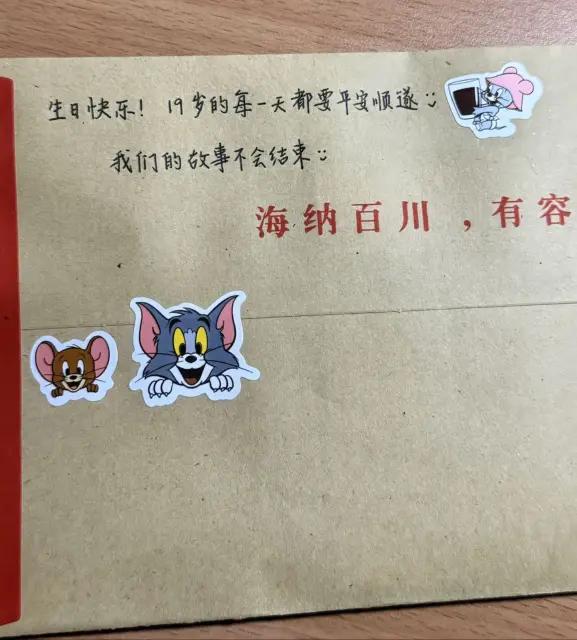 生日快乐! 19岁的每一天都要平安顺遂:)
我们的故事不会结束:)
海纳百川,有容